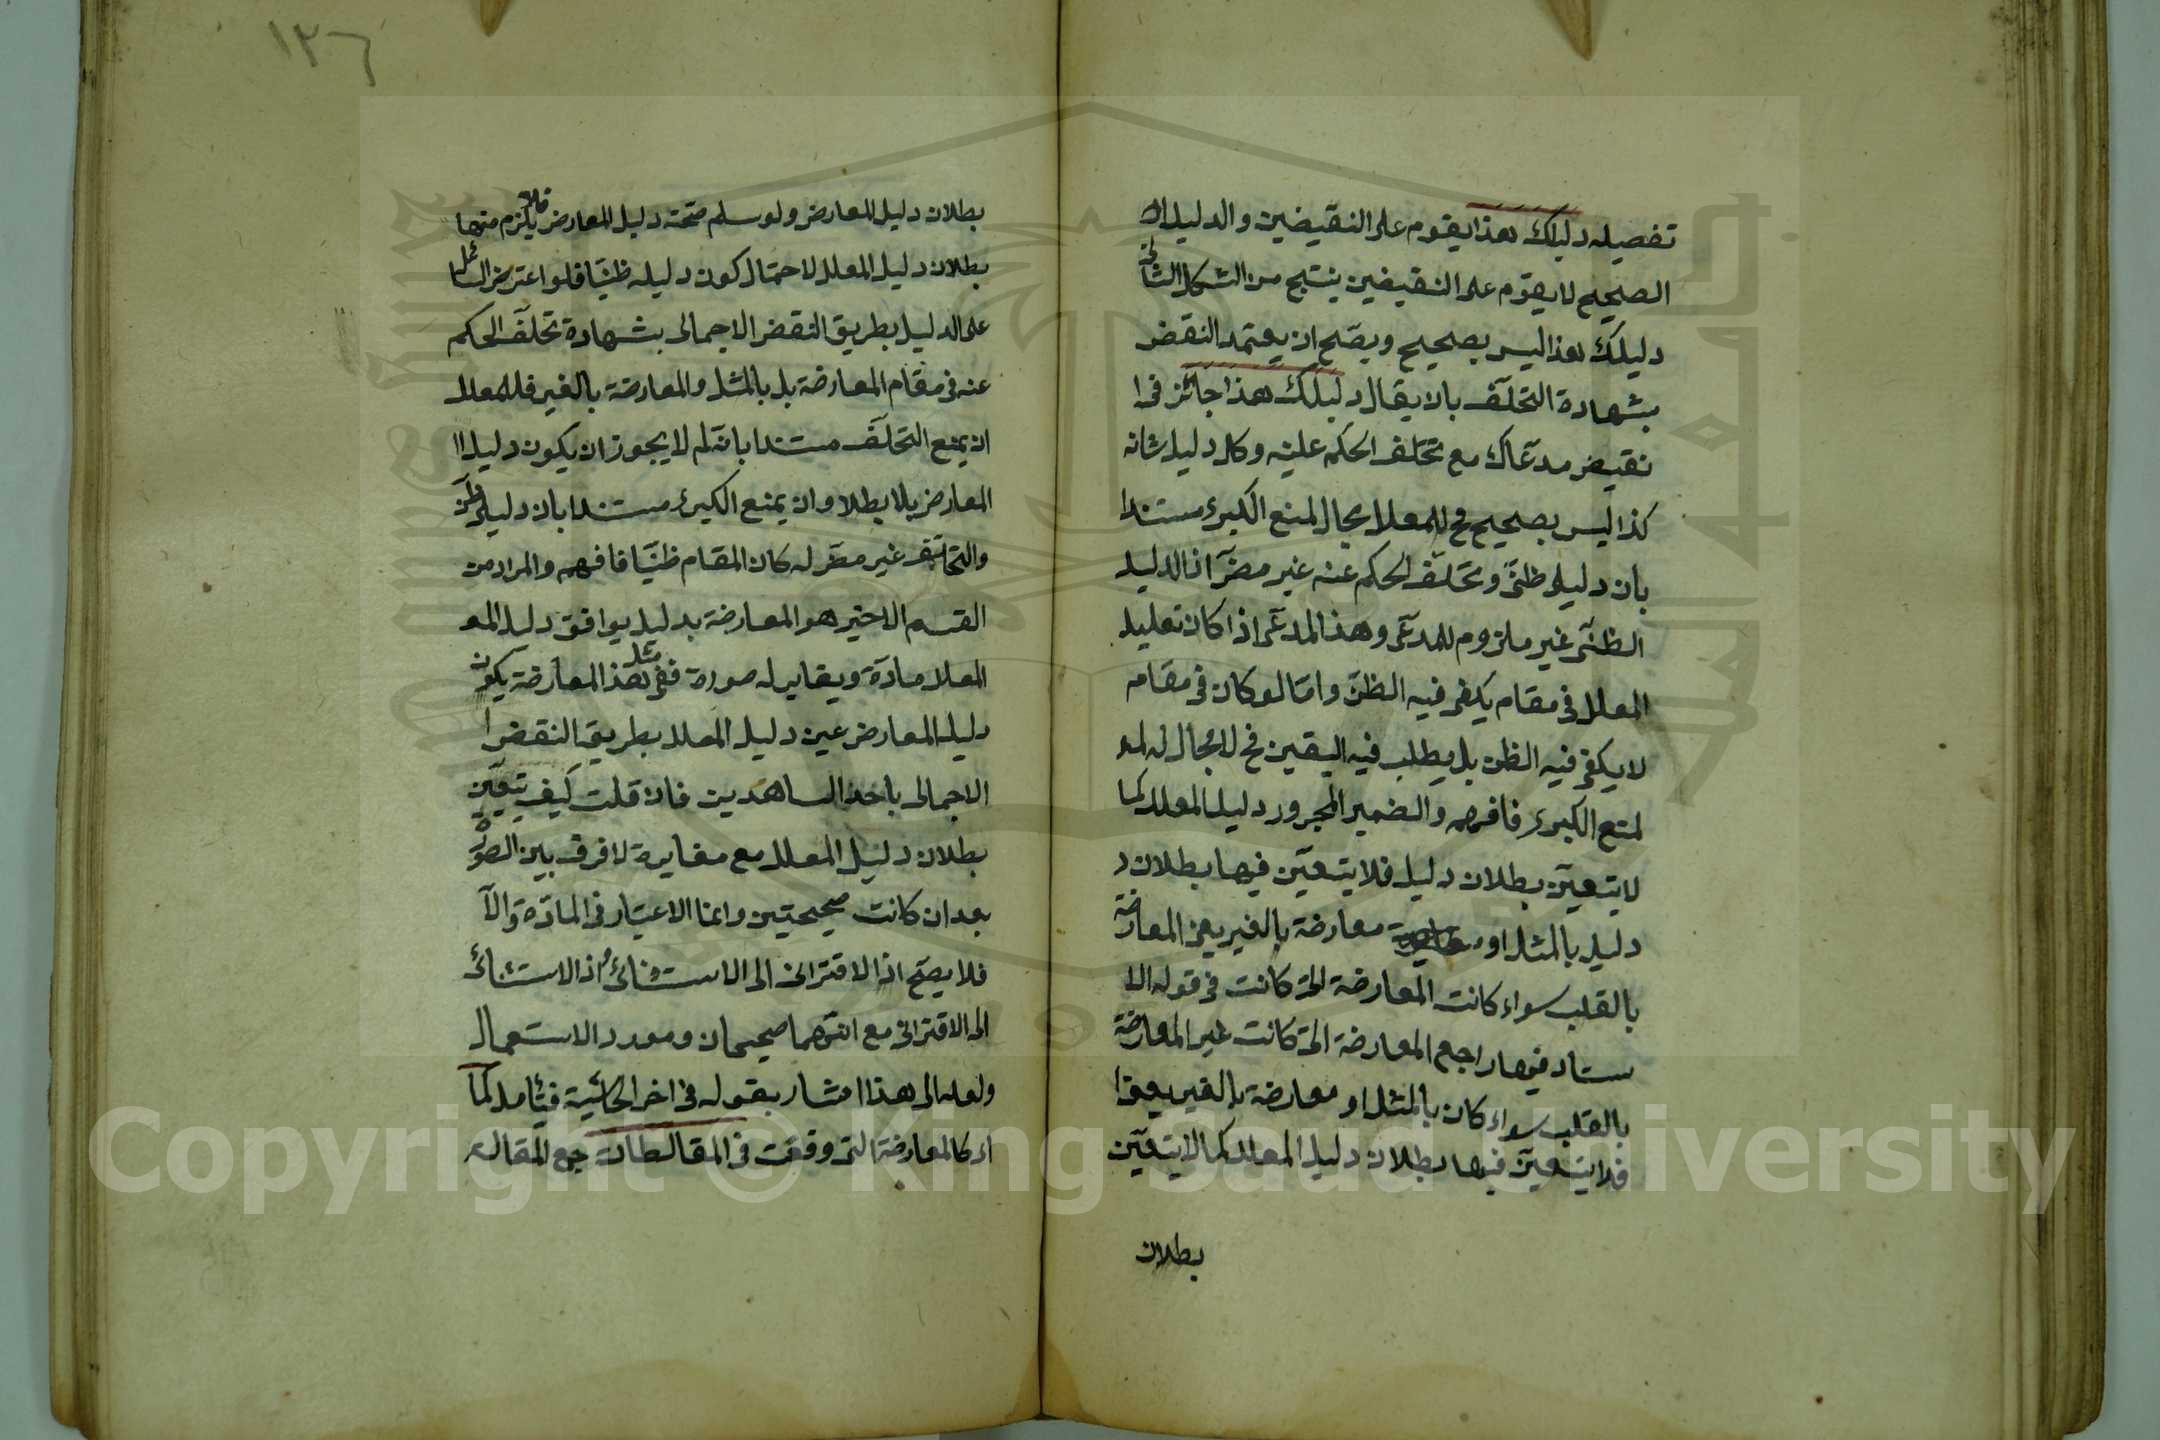 تفصيله دليلك هذا يقوم على النقيضين والدليل ال
الصحيح لا يقوم على النقيضين ينتج من الشكل الثاني
دليلك هذا ليس بصحيح ويصح ان يعتمد النقض
بشهادة التخلف بان يقال دليلك هذا جائز في ا
نقيض مدعاك مع تخلف الحكم عليه وكل دليل شانه
كذا ليس بصحيح فح للمعلل مجال لمنع الكبرى مستندا
بان دليلي ظني وتخلف الحكم عنه غير مضر اذ الدليل
الظني غير ملزوم للمدعى وهذا المدعى اذا كان تعليل
المعلل في مقام يكفى فيه الظن واما لو كان في مقام
لا يكفى فيه الظن بل يطلب فيه اليقين فح لا مجال له
لمنع الكبرى فافهم والضمير المجرور دليل المعلل كما
لا يتعين بطلان دليل فلا يتعين فيها بطلان د
دليل بالمثل او معارضة بالغير يعنى المعارضة
بالقلب سواء كانت المعارضة التى كانت في قوله الا
ستاد فيها راجع المعارضة التى كانت غير المعارضة
بالقلب سواء كان بالمثل او معارضة بالغير يعنى ا
فلا يتعين فيها بطلان دليل المعلل كما لا يتعين
بطلان
١٣٦
بطلان دليل المعارض ولو سلم صحة دليل المعارض فلا يلزم منها
بطلان دليل المعلل لاحتمال كون دليله ظنيا فلو اعترض السائل
على الدليل بطريق النقض الاجمالى بشهادة تخلف الحكم
عنه في مقام المعارضة بل بالمثل والمعارضة بالغير فللمعلل
ان يمنع التخلف مستندا بانه لم لا يجوز ان يكون دليل ا
المعارض بلا بطلا وان يمنع الكبرى مستندا بان دليلى ظنى
والتخلف غير مضر له كان المقام ظنيا فافهم والمراد من
القسم الاخير هو المعارضة بدليل يوافق دليل المع
المعلل مادة ويغاير له صورة ففى مثل هذا المعارضة يكون
دليل المعارض عين دليل المعلل بطريق النقض ا
الاجمالى باخذ الساهدين فان قلت كيف يتعين
بطلان دليل المعلل مع مغايرة لا فرق بين الصورة
بعد ان كانت صحيحتين وانما الاعتبار في المادة والا
فلا يصح اذ الاقترانى الى الاستثنائى اذ الاستثنائ
الى الاقترانى مع انهما صحيحان ومورد الاستعمال
ولعله الى هذا اشار بقوله في اخر الحاشية فيتامل كما
اى كالمعارضة التى وقعت في المغالطات جمع المغالطة
Copyright © King Saud University